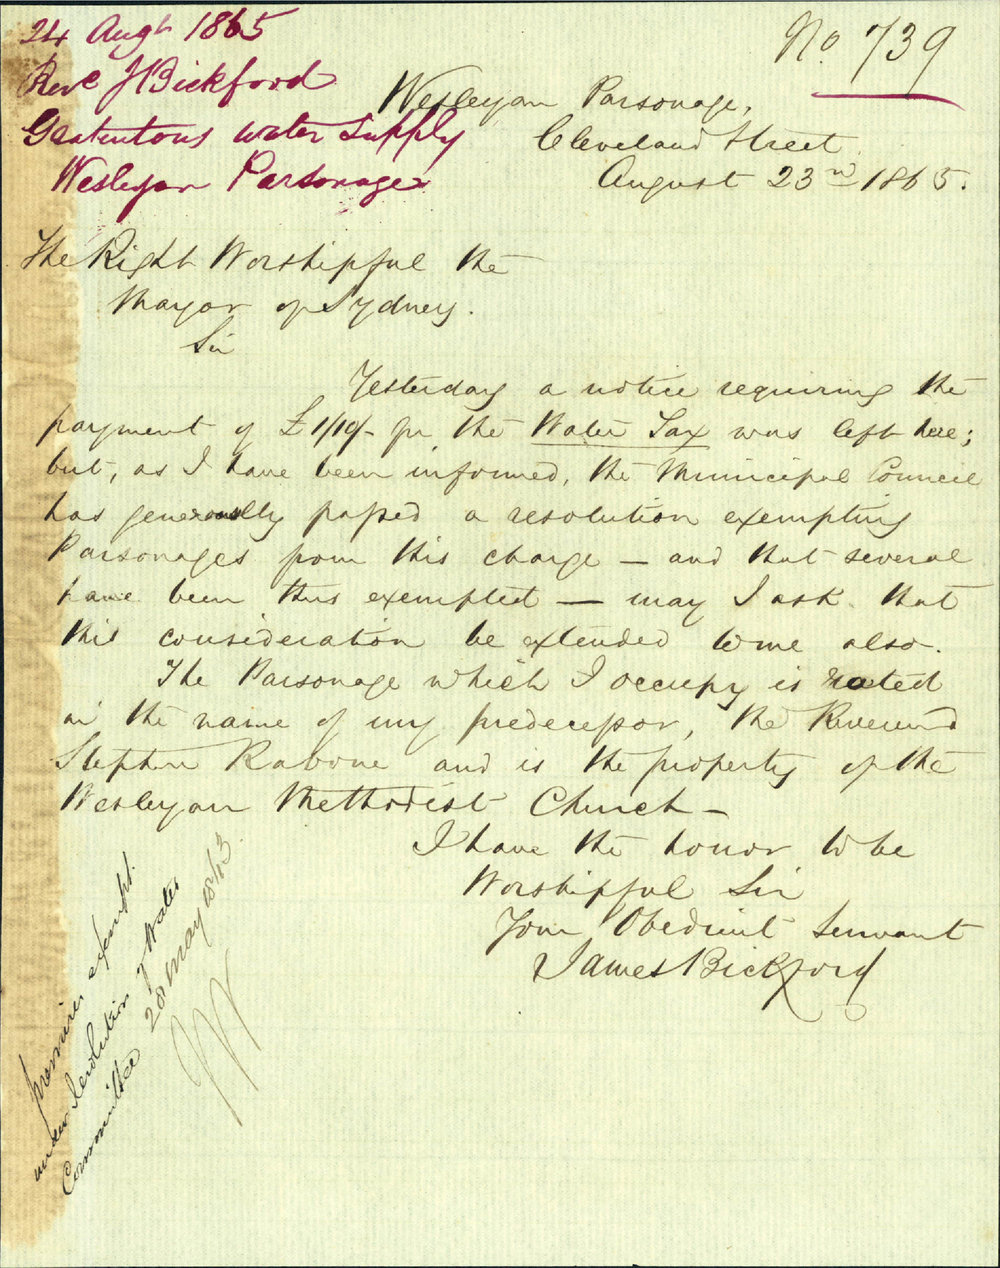 24 Augt 1865
Revd J Bickford
Gratuitous water Supply
Wesleyan Parsonage
No. 739
Wesleyan Parsonage,
Cleveland Street
August 23rd 1865.
The Right Worshipful the
Mayor of Sydney.
Sir
Yesterday a notice requiring the
payment of £1/10/- for the Water Tax was left here;
but, as I have been informed, the Municipal Council
has generously passed a resolution exempting
Parsonages from this charge — and that several
have been thus exempted — may I ask that
this consideration be extended to me also.
The Parsonage which I occupy is rated
in the name of my predecessor, the Reverend
Stephen Rabone and is the property of the
Wesleyan Methodist Church —
I have the honor to be
Worshipful Sir
Your Obedient Servant
James Bickford
premises exempt.
under resolution of Water
Committee 28 May 1863.